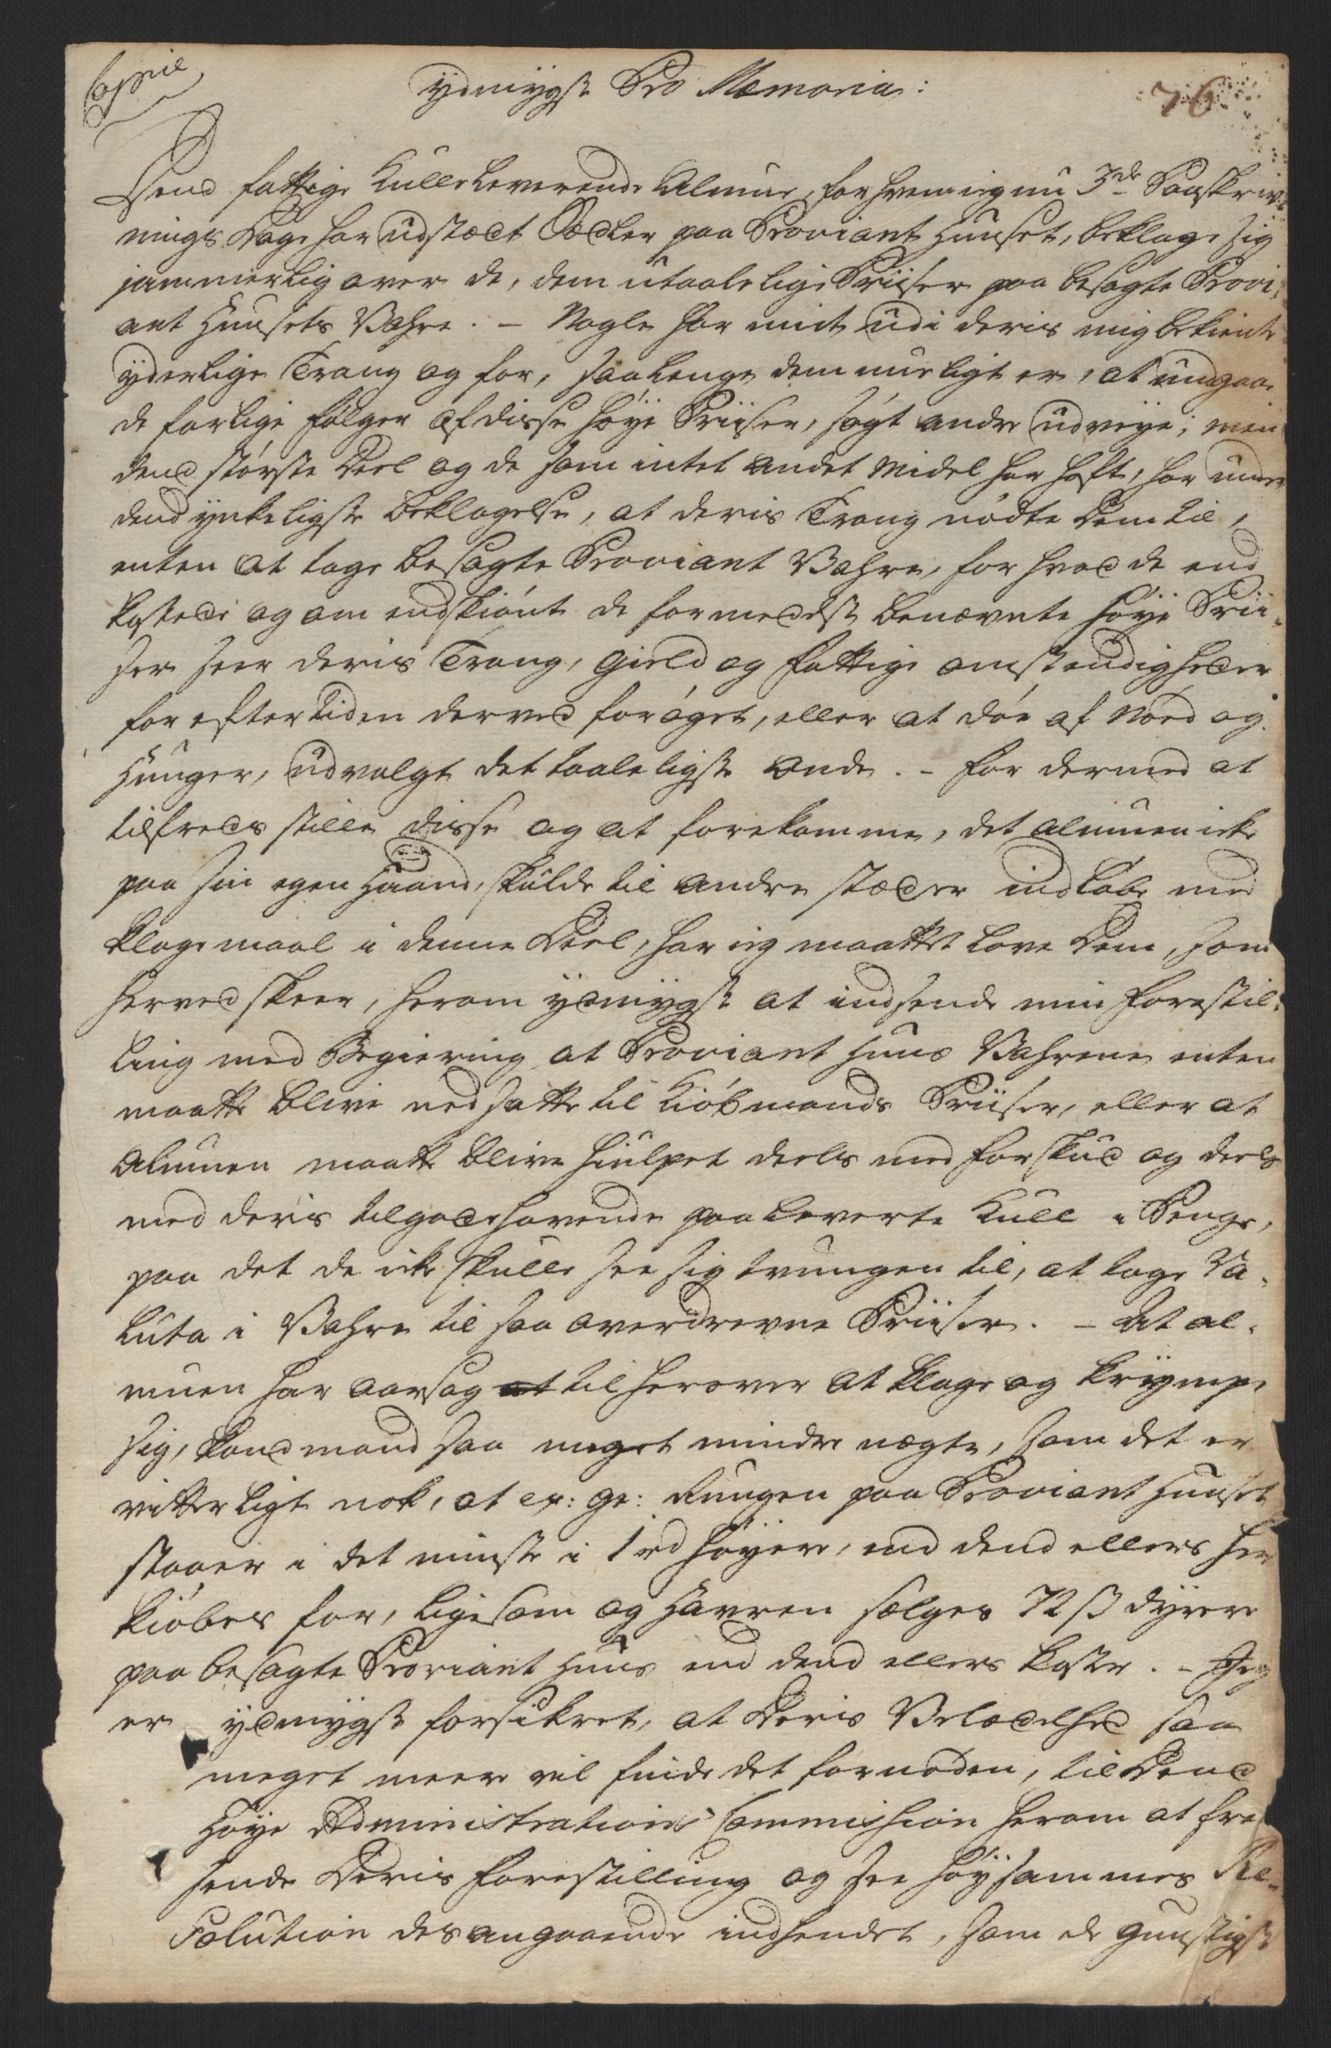 Copie
ydmygst Pro Memoria:
76
Dend fattige Kulleleverende Almue, for hvem ieg nu 3de Paaskriv-
nings Dage har udstædt Sædler paa Proviant Huuset, beklage sig
jammerlig over de, dem utaalelige Priiser paa besagte Provi-
ant Huusets Vahre. - Nogle har midt udi deris mig bekiente
yderlige Trang og for, saalenge dem mueligt er, at undgaae
de farlige følger af disse høye Priiser, søgt andre udveye; men
dend største Deel og de som intet andet Midel har haft, har under
dend ynkeligste beklagelse, at deris Trang nødte Dem til,
enten at tage besagte Proviant Vahre, for hvad de end
kostede og om endskiønt de formedelst benævnte høye Prii-
ser seer deris Trang, Gield og fattige omstendigheder
for eftertiden derved forøget, eller at døe af Nød og
Hunger, udvalgt det taaleligste onde. - For dermed at
tilfreds stille disse og at forekomme, det Almuen icke
paa sin egen Haand, skulde til andre stæder indløbe med
klagemaal i denne Deel, har ieg maattet love Dem, som
herved skeer, herom ydmygst at indsende min forestil-
ling med Begiering at Proviant Huus Vahrene enten
maatte blive nedsatte til Kiøbmands Priiser, eller at
Almuen maatte blive hiulpet deels med forskud og deels
med deris tilgodehavende paa leverte Kull i Penge,
paa det de icke skulle see sig tvungen til, at tage Va-
luta i Vahre til saa overdrevne Priiser. - At al-
muen har aarsag at til herover at klage og krympe
sig, kand mand saa meget mindre nægte, som det er
vitterligt nok, at ex: gr: Rugen paa Proviant Huuset
staaer i det minste i 1 rd høyere, end dend ellers her
kiøbes for, ligesom og Havren sælges 72 ß dyrere
paa besagte Proviant Huus end dend ellers koster. - Jeg
er ydmygst forsikret, at Deris Velædelhed saa
meget meere vil finde det fornøden, til Dend
Høye Administrations Commishion herom at frem
sende Deris forestilling og see høysammes Re-
solution desangaaende indsendet, som de gunstigst